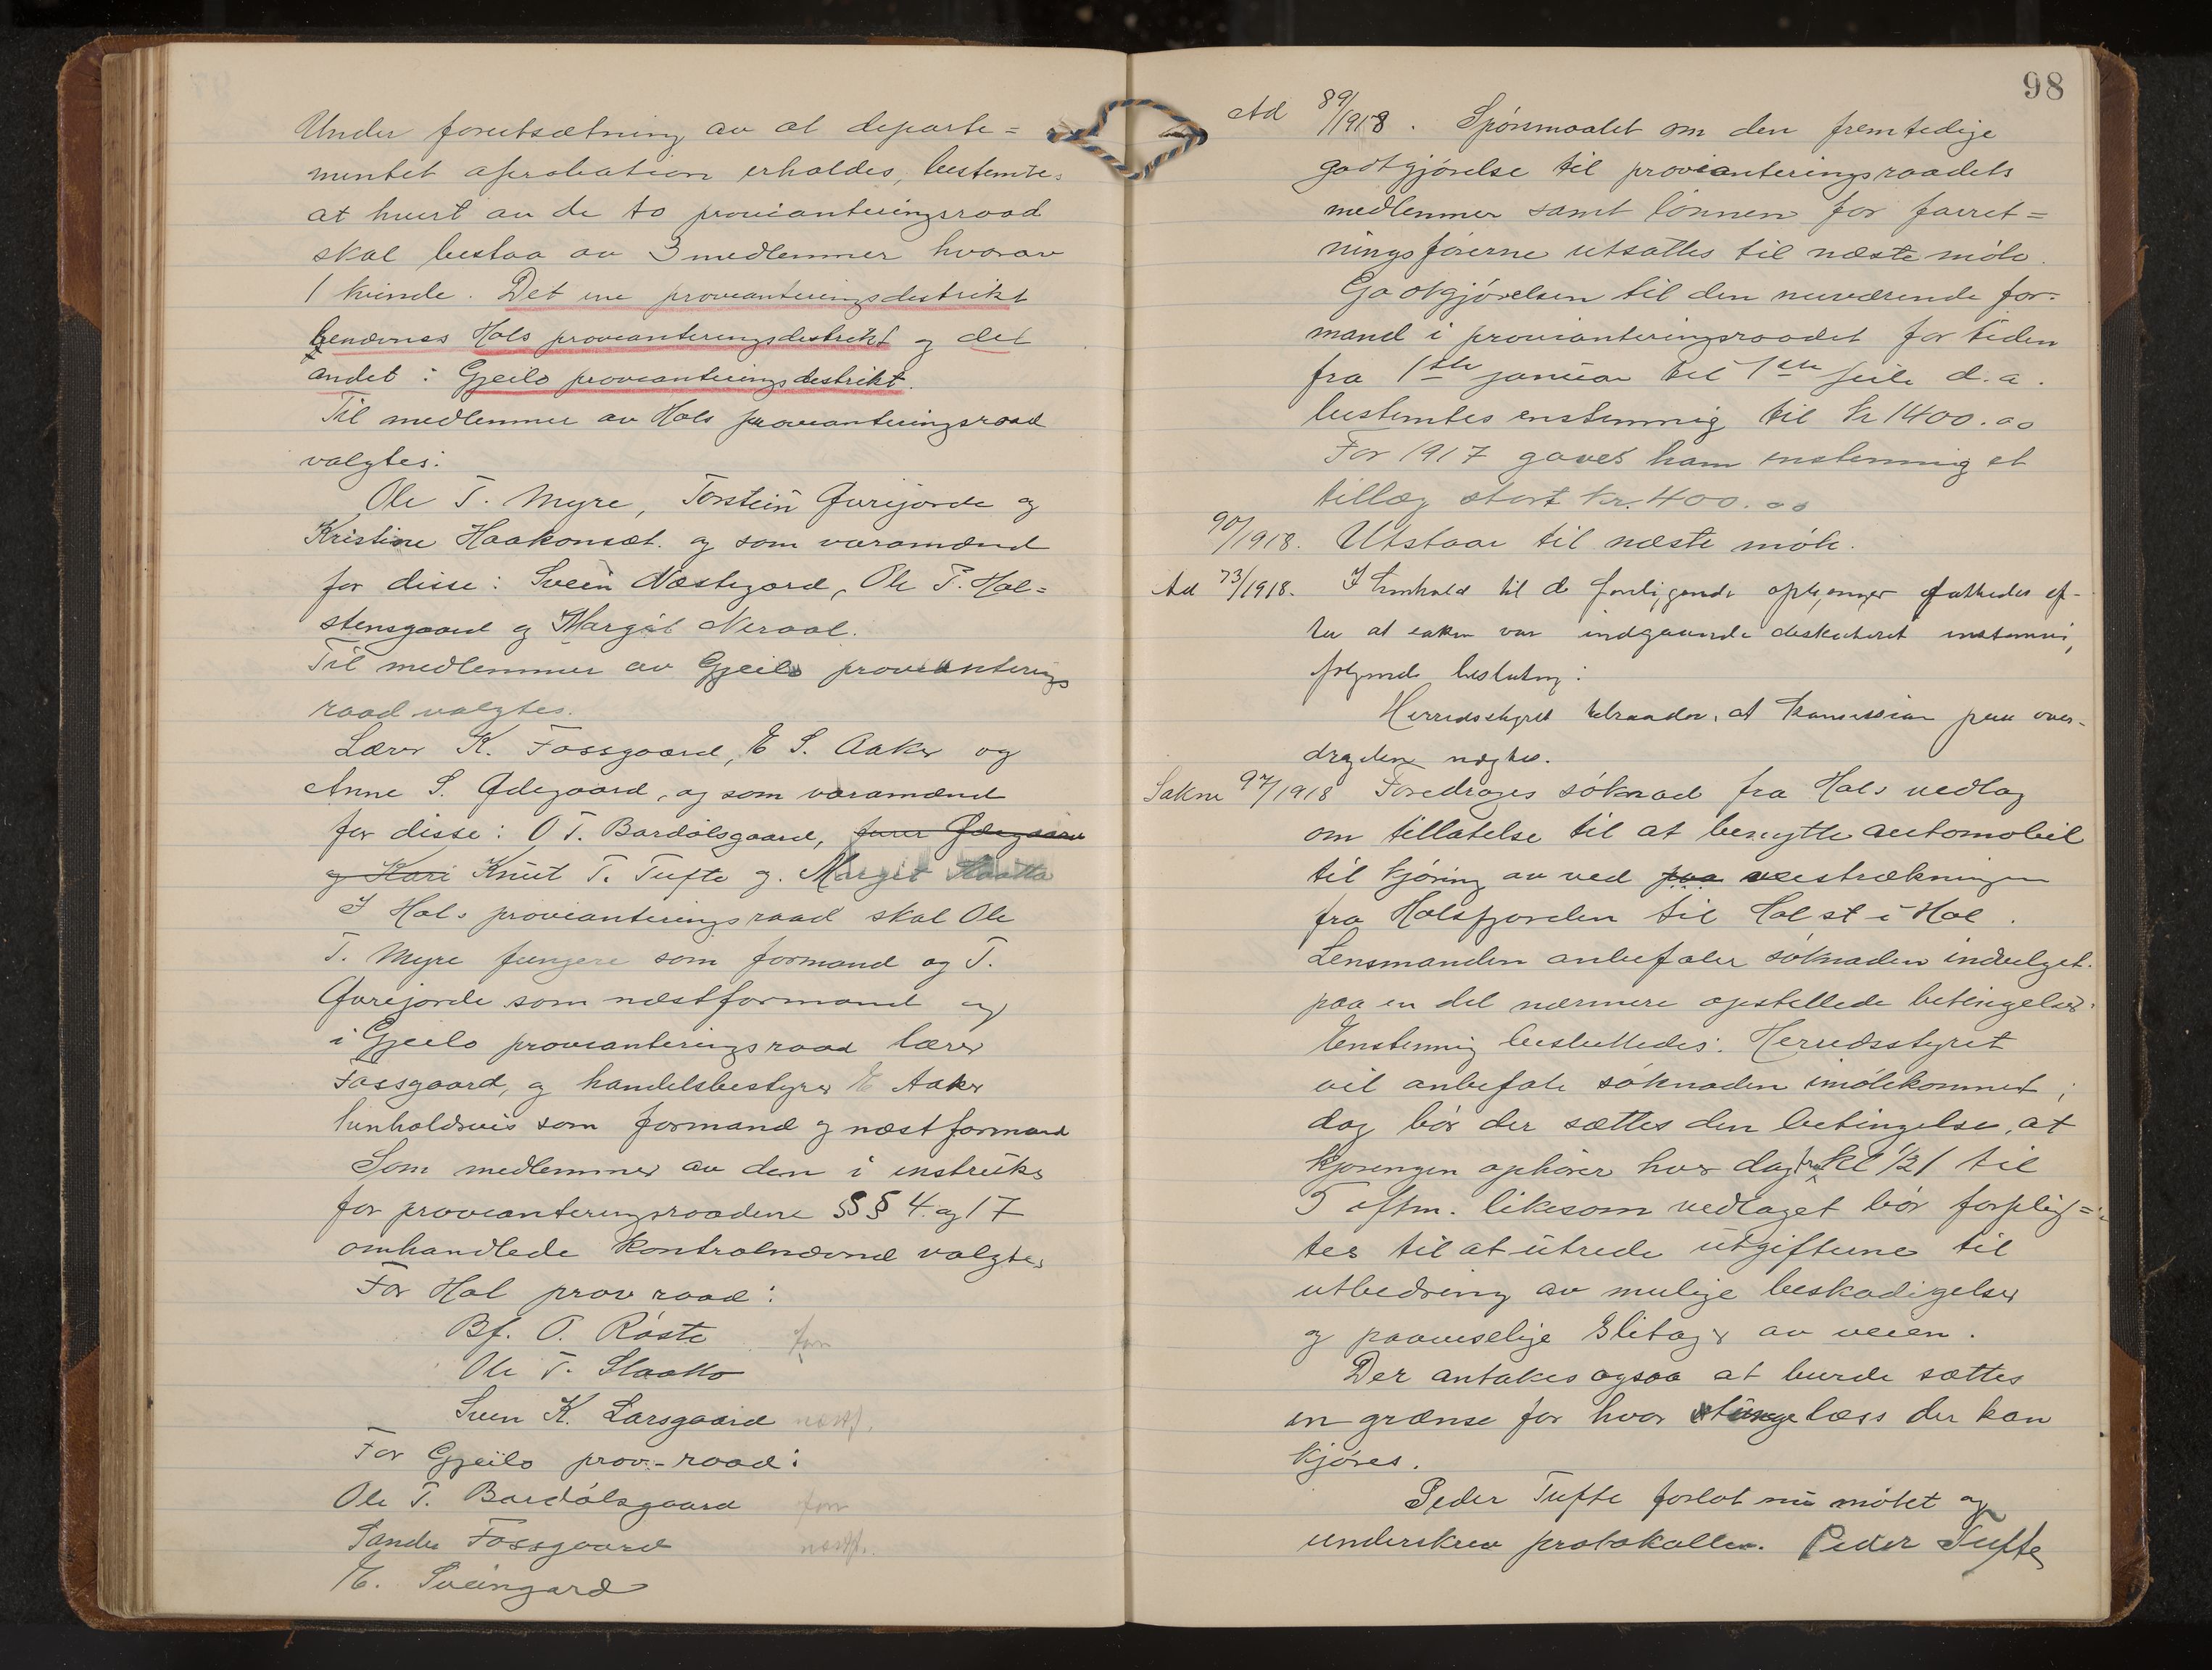 Under forutsætning av at departe=
mentet aprobation erholdes, bestemtes
at hvert av de to provianteringsraad
skal bestaa av 3 medlemmer hvorav
1 kvinde. Det ene provianteringsdestrikt
benævnes Hols provianteringsdestrikt og det
andet: Gjeilo provianteringsdestrikt.
Til medlemmer av Hols provianteringsraad
valgtes:
Ole T. Myre, Torstein Gurijorde og
Kristine Haakonsæt. og som varamænd
for disse: Svein Næstegard, Ole P. Hol=
stensgaard og Margit Neraal.
Til medlemmer av Gjeilo provianterings
raad valgtes.
Lærer K. Fossgaard, E S. Aaker og
Anne S. Ødegaard, og som varamænd
for disse: O T. Bardølsgaard, Ødegaard
og Kari Knut T. Tufte og. Margit Slaatto
I Hols provianteringsraad skal Ole
T. Myre fungere som formand og T.
Gurijorde som næstformand og
i Gjeilo provianteringsraad lærer
Fossgaard, og handelsbestyrer E Aaker
henholdsvis som formand og næstformand
Som medlemmer av den i instruks
for provianteringsraadene §§ 4. og 17
omhandlede kontrolnævnd valgtes
For Hol prov raad:
Bf. O. Røste form
Ole T. Slaatto
Sven K. Larsgaard næstf.
For Gjeilo prov.-raad:
Ole T. Bardølsgaard form
Sander Fossgaard næstf.
E. Sveingard
98
Ad 89/1918. Spørsmaalet om den fremtidige
godtgjørelse til provianteringsraadets
medlemmer samt lønnen for forret=
ningsførerne utsattes til næste møte.
Godtgjørelsen til den nuværende for=
mand i provianteringsraadet for tiden
fra 1ste januar til 1ste juli d.a.
bestemtes enstemmig til kr 1400.00
For 1917 gaves ham enstemmig et
tillæg stort kr. 400.00
90/1918. Utstaar til næste møte.
Ad 73/1918. I henhold til de foreliggende oplysninger fattedes ef-
ter at saken var indgaaende diskuteret enstemmig
følgende beslutning:
Herredsstyret tilraader, at konsession paa over-
dragelsen nægtes.
Sakne 97/1918 Foredroges søknad fra Hols vedlag
om tillatelse til at benytte automobil
til kjøring av ved paa veistrækningen
fra Holsfjorden til Hol st i Hol.
Lensmanden anbefaler søknaden indvilget.
paa en del nærmere opstillede betingelser.
Enstemmig besluttedes: Herredsstyret
vil anbefale søknaden imøtekommet;
dog bør der sættes den betingelse, at
kjøringen ophører hver dag fra kl 1/21 til
5 eftm. likesom vedlaget bør forplig=
tes til at utrede utgifterne til
utbedring av mulige beskadigelser
og paaviselige slitager av veien.
Der antakes ogsaa at burde sættes
en grænse for hvor tunge læss der kan
kjøres.
Peder Tufte forlot nu møtet og
underskrev protokollen. Peder Tufte